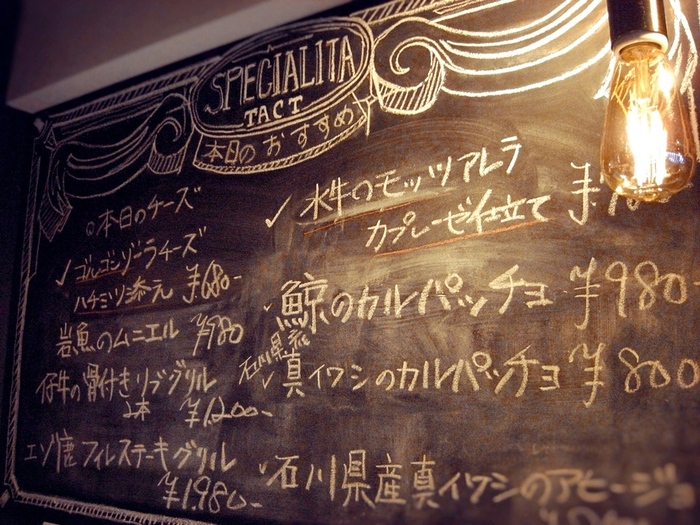 SPECIALITA
TACT
本日のおすすめ
○本日のチーズ
✓ゴルゴンゾーラチーズ
ハチミツ添え ¥680-
岩魚のムニエル ¥980
仔牛の骨付きリブグリル
2本 ¥1,200-
エゾ鹿フィレステーキグリル
¥1,980-
✓水牛のモッツアレラ
カプレーゼ仕立て
鯨のカルパッチョ ¥980
石川県産
真イワシのカルパッチョ ¥800
石川県産真イワシのアヒージョ